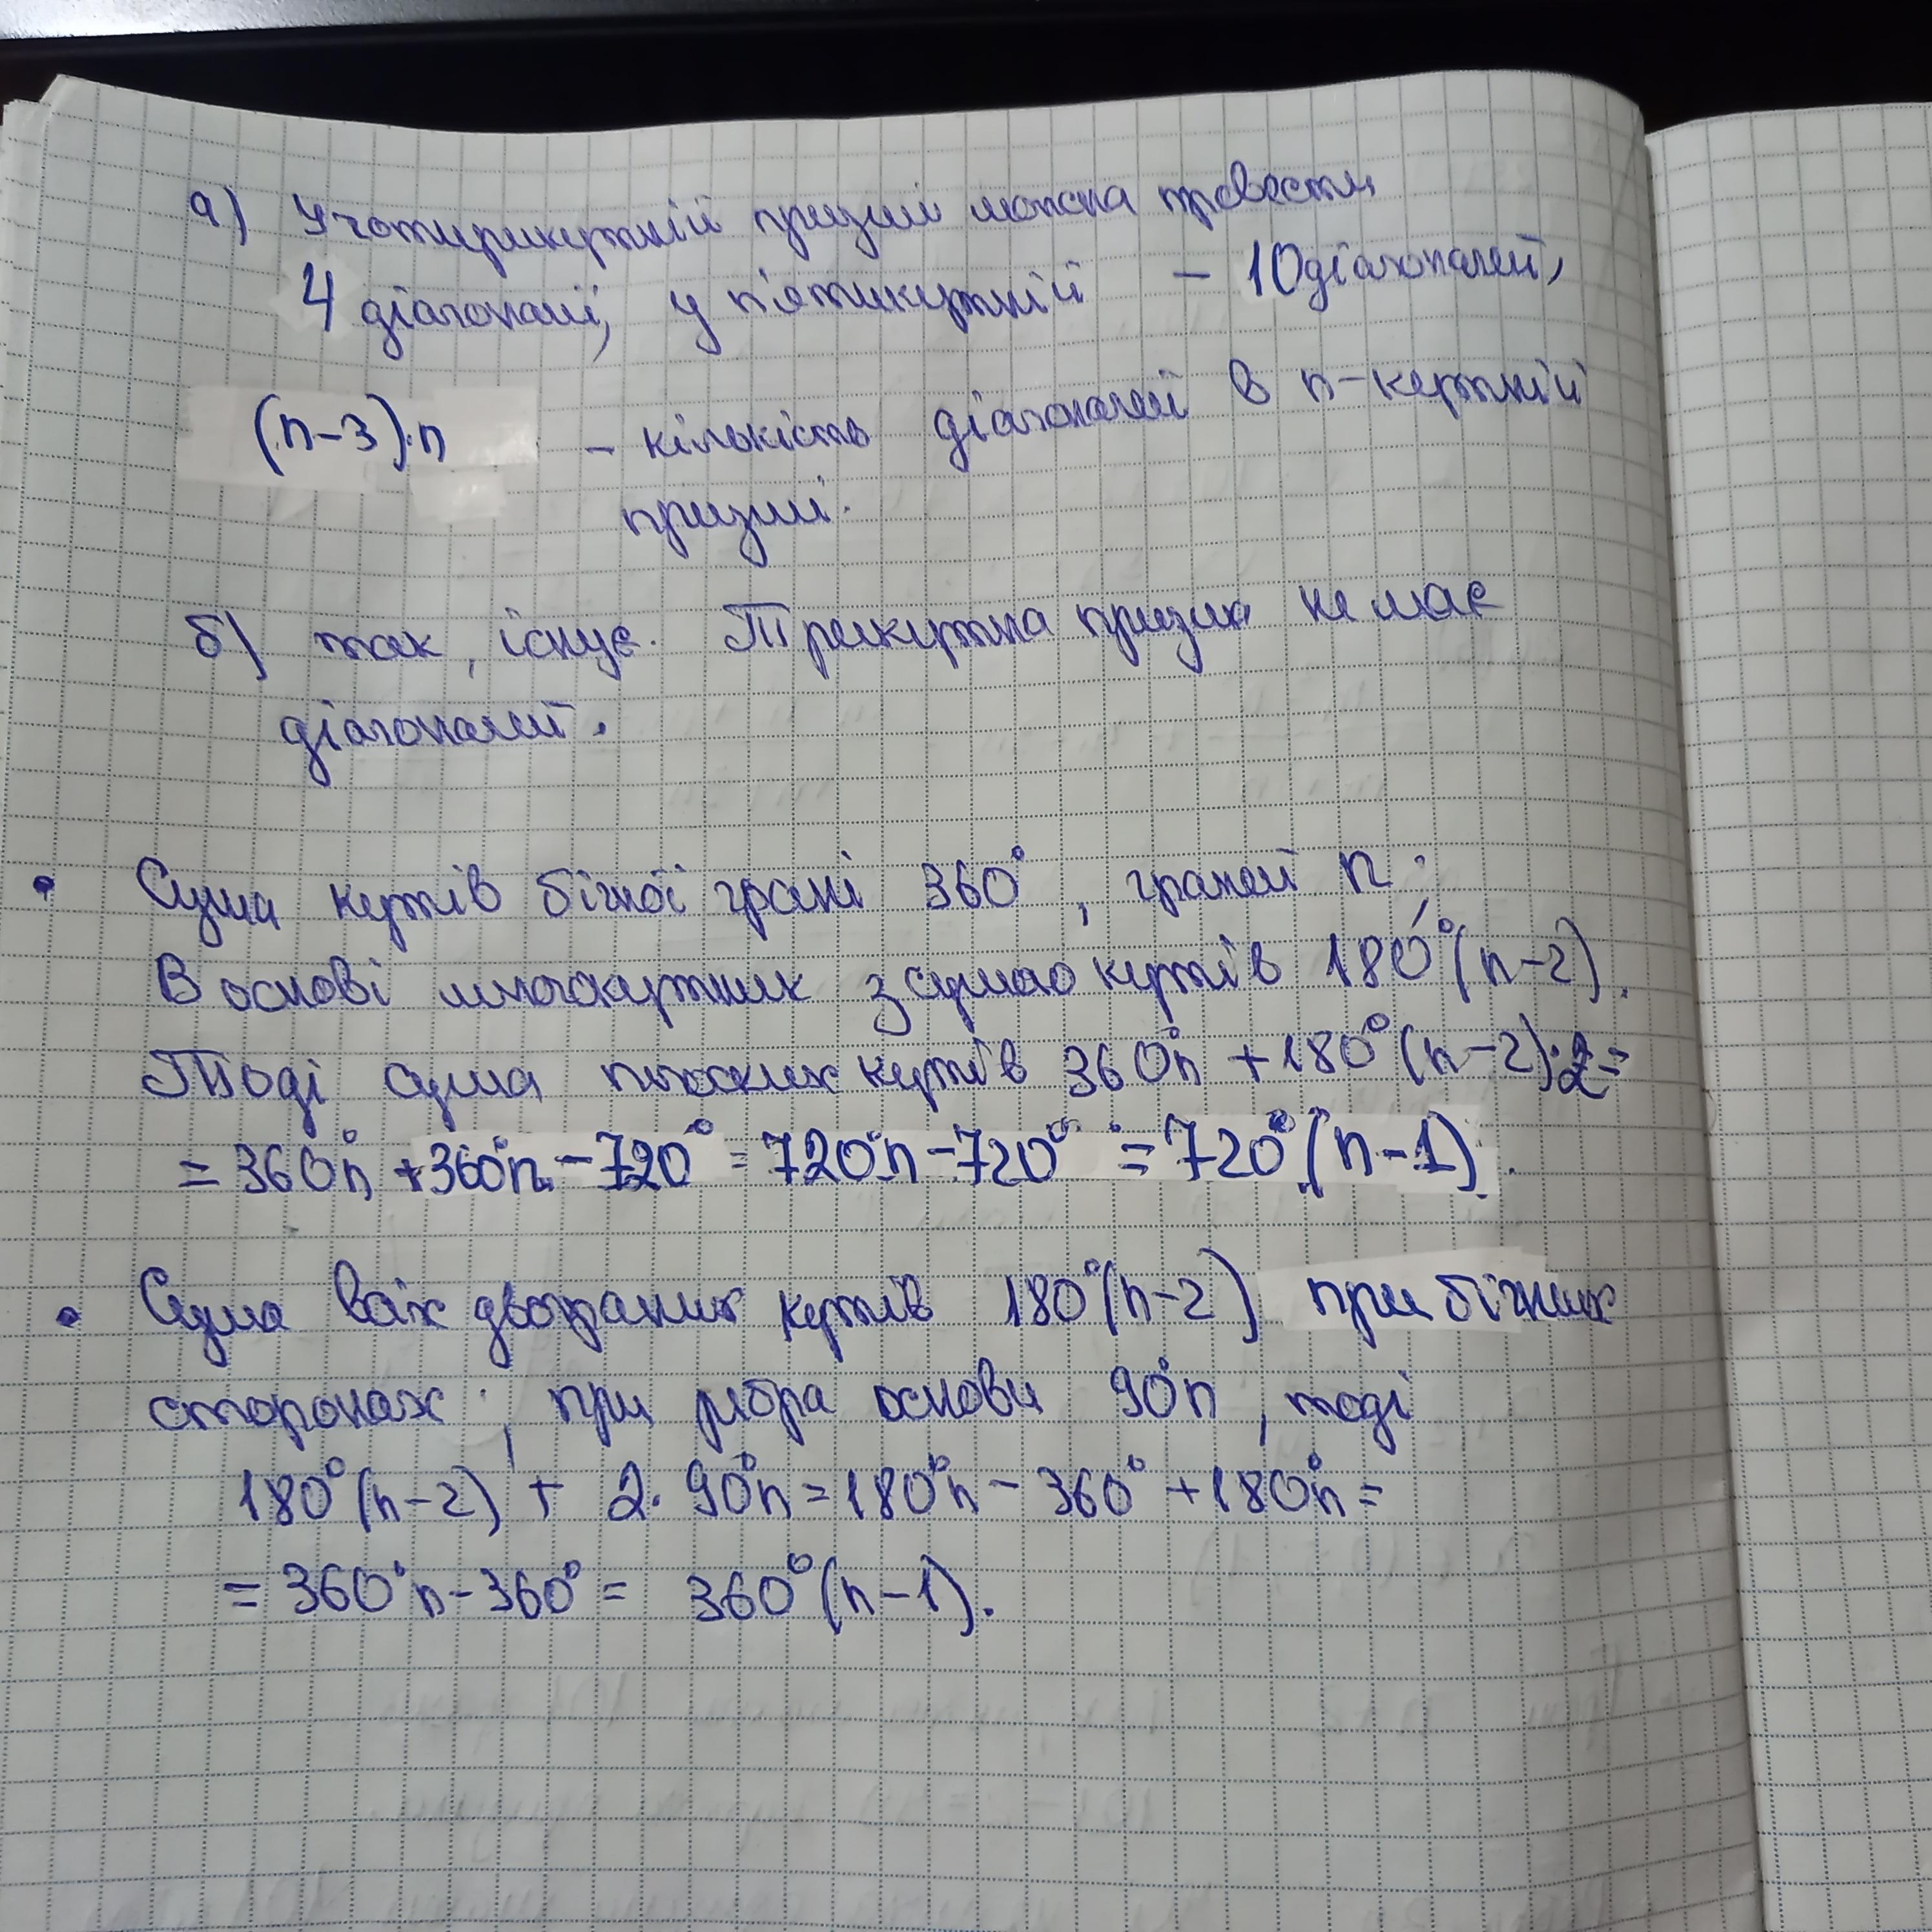 а) У чотирикутній призмі можна провести
4 діагоналі, у п'ятикутній – 10 діагоналей,
(n-3)·n – кількість діагоналей в n-кутній
призмі.
б) так, існує. Трикутна призма не має
діагоналей.
• Сума кутів бічної грані 360°, граней n;
В основі многокутник з сумою кутів 180°(n-2).
Тоді сума плоских кутів 360°n + 180°(n-2)·2=
= 360°n + 360°n - 720° = 720°n - 720° = 720°(n-1).
• Сума всіх двогранних кутів 180°(n-2) при бічних
сторонах; при ребра основи 90°n, тоді
180°(n-2) + 2·90°n = 180°n - 360° + 180°n =
= 360°n - 360° = 360°(n-1).